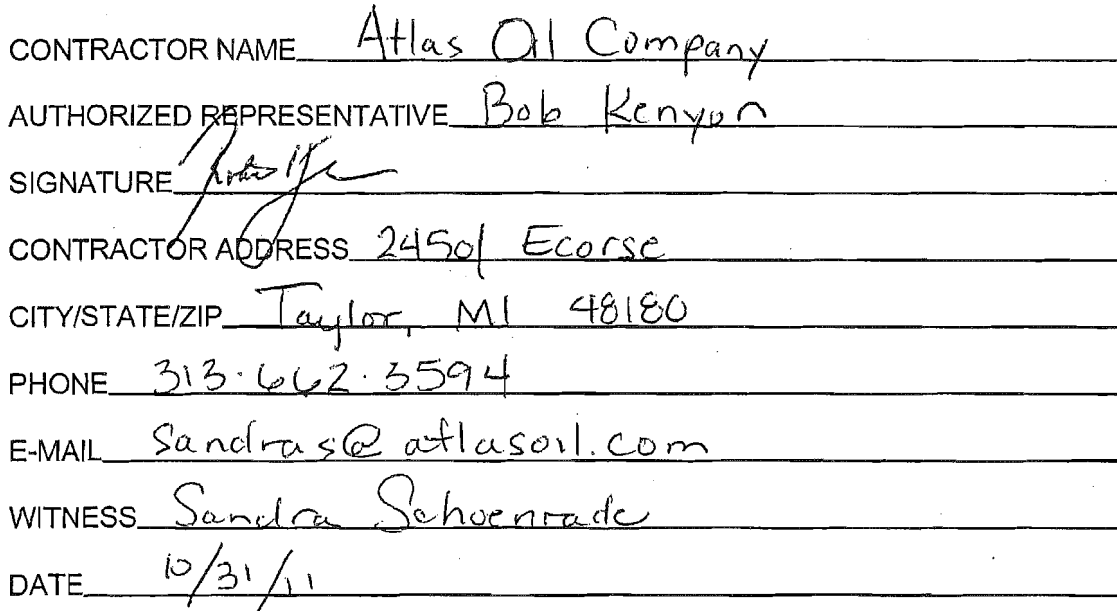 CONTRACTOR NAME Atlas Oil Company
AUTHORIZED REPRESENTATIVE Bob Kenyon
SIGNATURE
CONTRACTOR ADDRESS 24501 Ecorse
CITY/STATE/ZIP Taylor, MI 48180
PHONE 313·662·3594
E-MAIL sandras@atlasoil.com
WITNESS Sandra Schoenrade
DATE 10/31/11